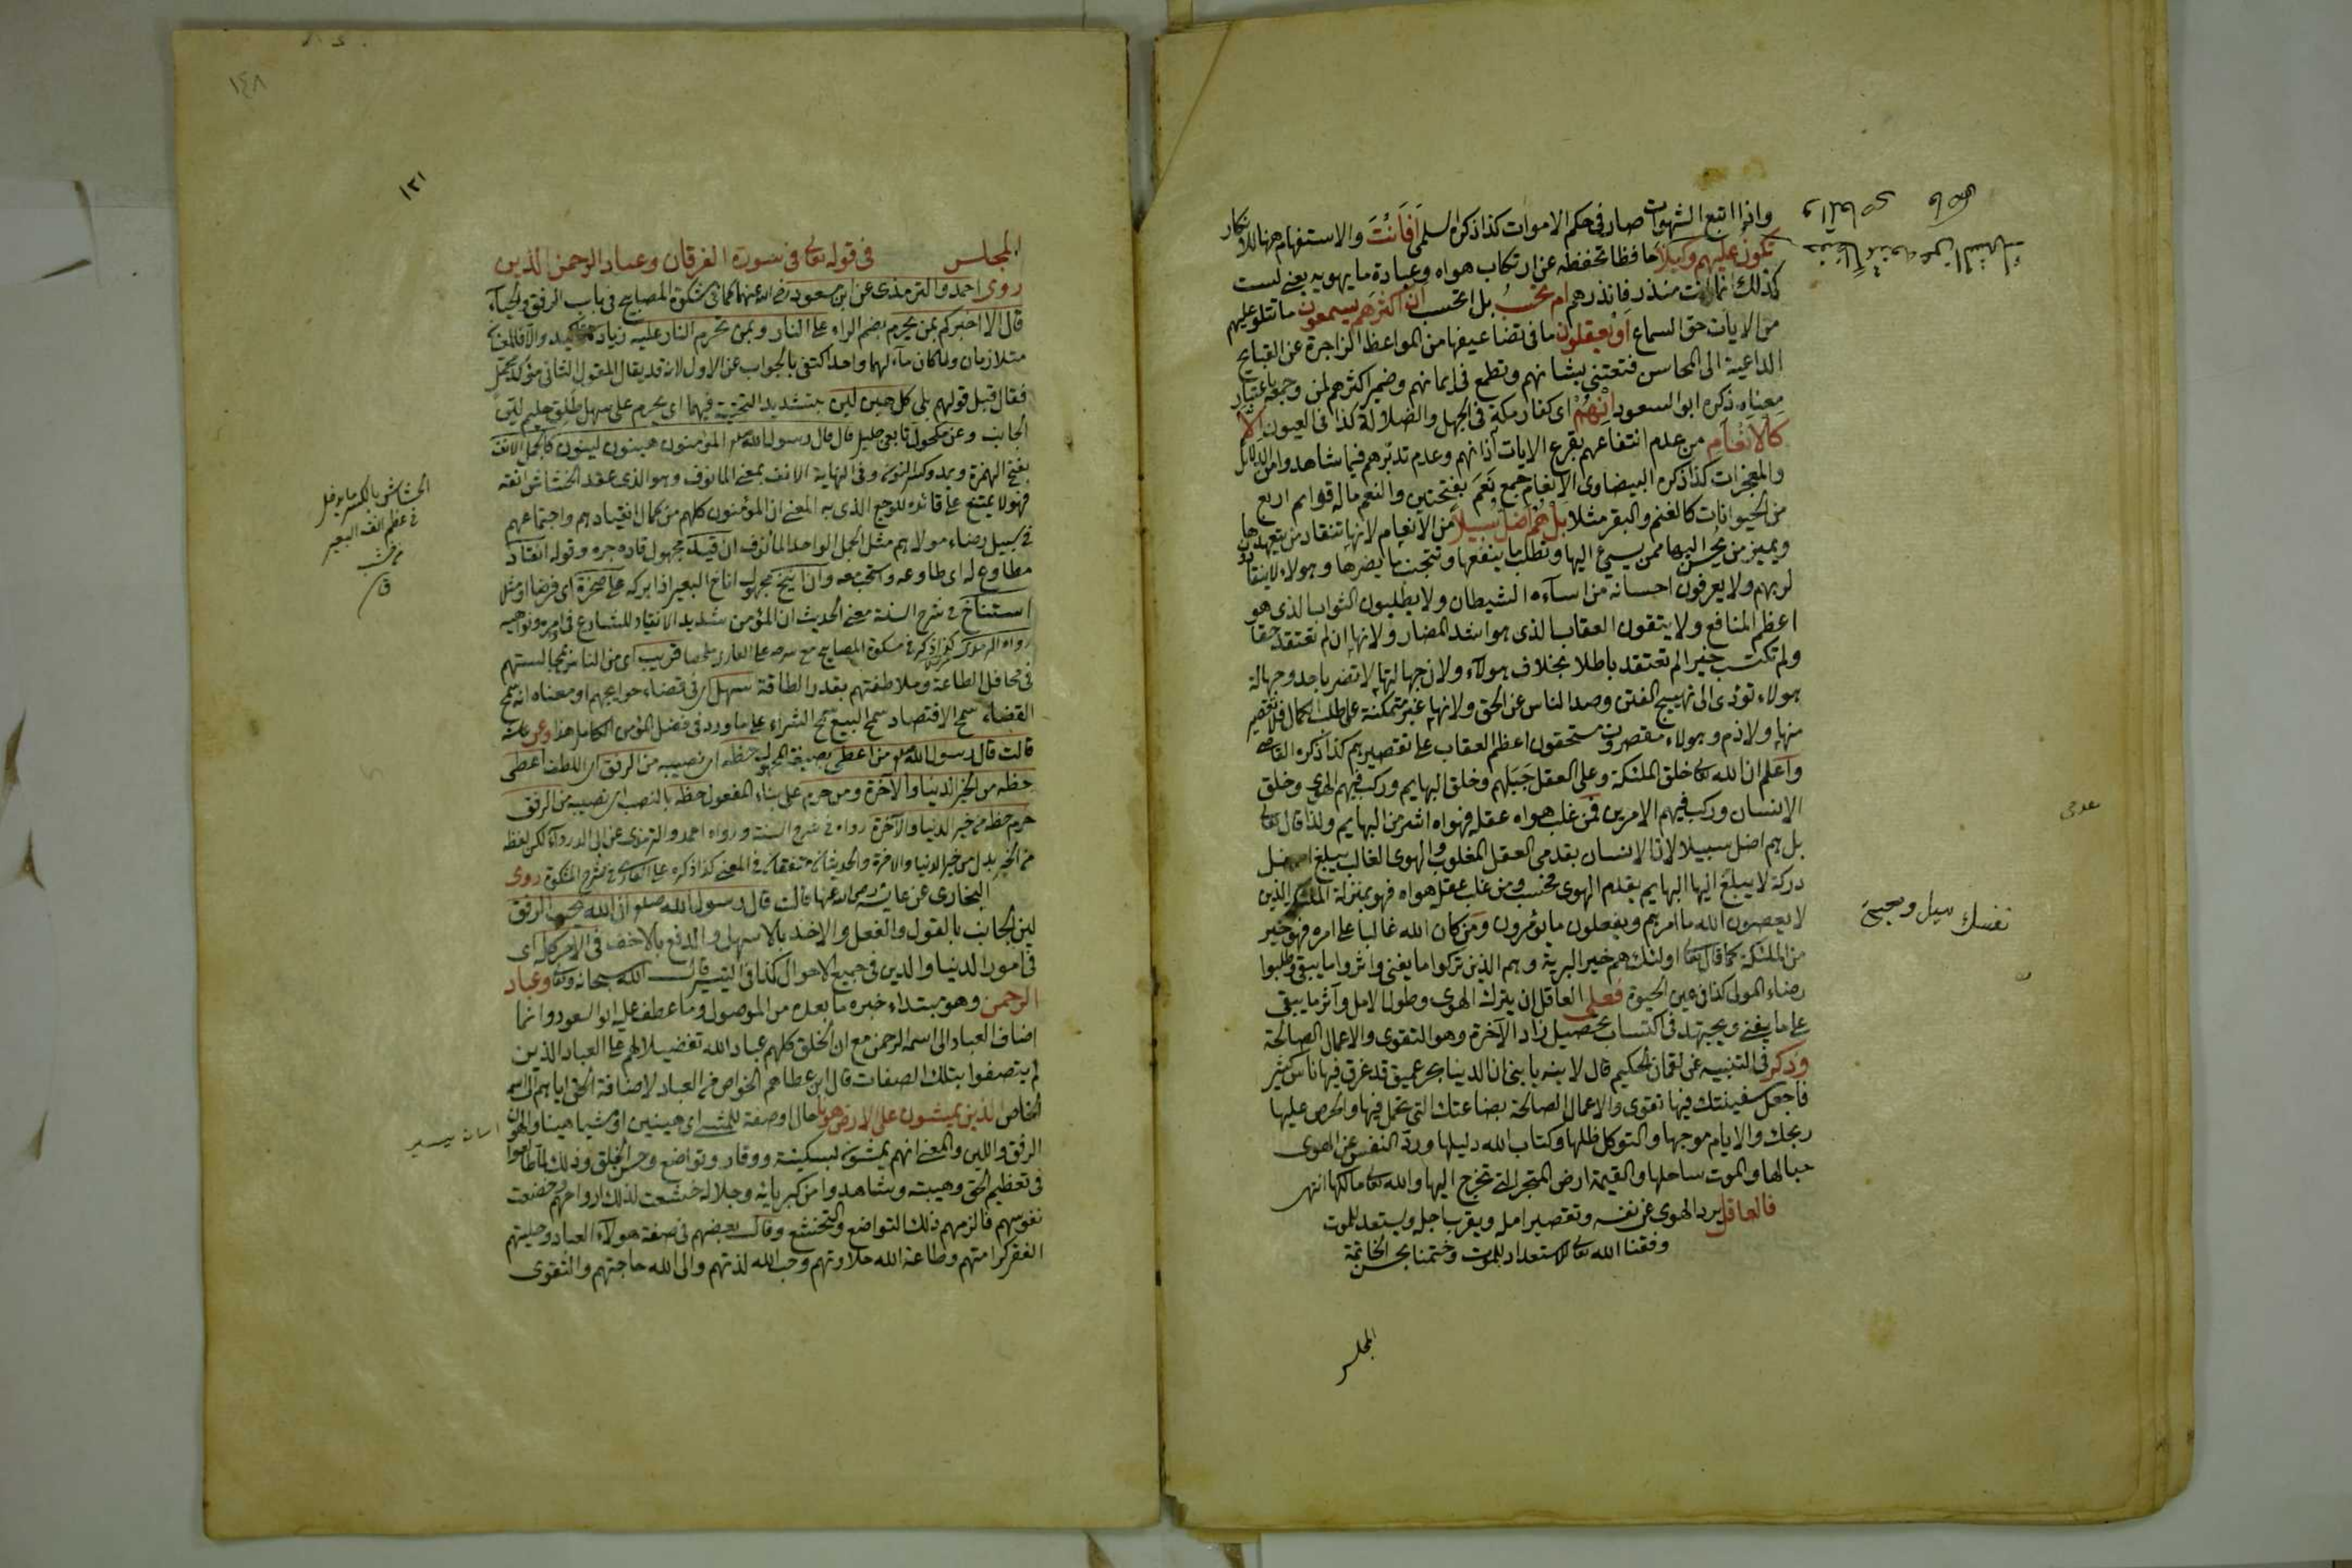 واذا اتبع الشهوات صار فى حكم الاموات كذا ذكره السلمى أفأنت والاستفهام ههنا للانكار
تكون عليهم وكيلا حافظا تحفظه عن ارتكاب هواه وعبادة ما يهويه يعنى لست
كذلك انما انت منذر فانذرهم ام تحسب بل اتحسب أن اكثرهم يسمعون ما تتلو عليهم
من الايات حق السماع او يعقلون ما فى تضاعيفها من المواعظ الزاجرة عن القبايح
الداعية الى المحاسن فتعتنى بشانهم وتطمع فى ايمانهم وضمير اكثرهم لمن وجمعه باعتبار
معناه ذكره ابو السعود ان هم اى كفار مكة فى الجهل والضلالة كذا فى العيون الا
كالانعام من عدم انتفاعهم بقرع الايات آذانهم وعدم تدبرهم فيما شاهدوا من الدلائل
والمعجزات كذا ذكره البيضاوى الانعام جمع نعم بفتحتين والنعم ماله قوائم اربع
من الحيوانات كالغنم والبقر مثلا بل هم اضل سبيلا من الانعام لانها تنقاد من يتعهدها
ويميز من يحسن اليها ممن يسيئ اليها وتطلب ما ينفعها وتتجنب ما يضرها وهولاء لا ينقادون
لربهم ولا يعرفون احسانه من اساءة الشيطان ولا يطلبون الثواب الذى هو
اعظم المنافع ولا يتقون العقاب الذى هو اشد المضار ولانها ان لم تعتقد حقا
ولم تكتسب خيرا لم تعتقد باطلا بخلاف هولاء ولان جهالتها لا تضر باحد وجهالة
هولاء تؤدى الى تهييج الفتن وصد الناس عن الحق ولانها غير متمكنة على طلب الكمال فلا تقصير
منها ولا ذم وهولاء مقصرون مستحقون اعظم العقاب على تقصيرهم كذا ذكره القاضى
واعلم ان الله تعالى خلق الملئكة وعلى العقل جبلهم وخلق البهايم وركب فيهم الهوى وخلق
الانسان وركب فيهم الامرين فمن غلب هواه عقله فهواه اشر من البهايم ولذا قال تعالى
بل هم اضل سبيلا لان الانسان بقدمى العقل المغلوب والهوى الغالب يبلغ اسفل
دركة لا يبلغ اليها البهايم بقدم الهوى فحسب ومن غلب عقله هواه فهو بمنزلة الملئكة الذين
لا يعصون الله ما امرهم ويفعلون ما يؤمرون ومن كان الله غالبا على امره فهو خير
من الملئكة كما قال تعالى اولئك هم خير البرية وهم الذين تركوا ما يفنى واثروا ما يبقى وطلبوا
رضاء المولى كذا فى عين الحيوة فعلى العاقل ان يترك الهوى وطول الامل وآثر ما يبقى
على ما يفنى ويجتهد فى اكتساب تحصيل زاد الآخرة وهو التقوى والاعمال الصالحة
وذكر فى التنبيه عن لقمان الحكيم قال لابنه يا بنى ان الدنيا بحر عميق قد غرق فيها ناس كثير
فاجعل سفينتك فيها تقوى والاعمال الصالحة بضاعتك التى تحمل فيها والحرص عليها
ربحك والايام موجها والتوكل ظلها وكتاب الله دليلها ورد النفس عن الهوى
حبالها والموت ساحلها والقيمة ارض المتجر التى تخرج اليها والله تعالى مالكها انتهى
فالعاقل يرد الهوى عن نفسه وتقصير امله ويقرب اجله ويستعد للموت
وفقنا الله تعالى للاستعداد للموت وختمنا بحسن الخاتمة
المجلس
نفسك سيل وصحبتى
١٤٨
١٣١
المجلس فى قوله تعالى فى سورة الفرقان وعباد الرحمن الذين
روى احمد والترمذى عن ابن مسعود رضى الله عنهما كما فى مشكوة المصابيح فى باب الرفق والحياء
قال الا اخبركم بمن يحرم بضم الراء على النار وبمن تحرم النار عليه زيادة تاكيد والا فالمعنيان
متلازمان ولما كان مآلهما واحدا اكتفى بالجواب عن الاول لانه قد يقال المقول الثانى مؤكد
فقال قبل قولهم بلى كل هين لين بتشديد التحتية فيهما اى يحرم على سهل طلق حليم لين
الجانب وعن مكحول تابعى جليل قال قال رسول الله صلعم المؤمنون هينون لينون كالجمل الانف
بفتح الهمزة ويمد وكسر النون وفى النهاية الانف بمعنى المأنوف وهو الذى عقد الخشاش انفه
فهو لا يمتنع على قائده للوجع الذى به المعنى ان المؤمنون كلهم من كمال انقيادهم واجتماعهم
فى سبيل رضاء مولاهم مثل الجمل الواحد المأنوف ان قيد مجهول قاده جره وقوله انقاد
مطاوع له اى طاوعه واستحب معه وان انيخ مجهول اناخ البعير اذا ابركه على صخرة اى فرضا او مثلا
استناخ فى شرح السنة معنى الحديث ان المؤمن شديد الانقياد للشارع فى امره ونواهيه
قريب اى من الناس بمجالستهم
فى محافل الطاعة وملاطفتهم بقدر الطاقة سهل اى فى قضاء حوايجهم او معناه انه سمح
القضاء سمح الاقتضاء سمح البيع سمح الشراء على ما ورد فى فضل المؤمن الكامل هذا وعن عائشة
قالت قال رسول الله صلعم من اعطى بصيغة المجهول حظه اى نصيبه من الرفق اى اللطف اعطى
حظه من الخير الدنيا والآخرة ومن حرم على بناء المفعول حظه بالنصب اى نصيبه من الرفق
حرم حظه من خير الدنيا والآخرة رواه فى شرح السنة ورواه احمد والترمذى عن ابى الدرداء لكن لفظه
من الخير بدل من خير الدنيا والاخرة والحديثان متفقان فى المعنى كذا ذكره على القارى فى شرح المشكوة روى
البخارى عن عائشة رضى الله عنها قالت قال رسول الله صلعم ان الله يحب الرفق
لين الجانب بالقول والفعل والاخذ بالاسهل والدفع بالاخف فى الامر كله اى
فى امور الدنيا والدين فى جميع الاحوال كذا فى التيسير قال الله سبحانه وتعالى وعباد
الرحمن وهو مبتداء خبره ما بعده من الموصول وما عطف عليه ابو السعود وانما
اضاف العباد الى اسمه الرحمن مع ان الخلق كلهم عباد الله تفضيلا لهم على العباد الذين
لم يتصفوا بتلك الصفات قال ابن عطا هم الخواص من العباد لاضافة الحق اياهم الى اسمه
الخاص الذين يمشون على الارض هونا حال او صفة للمشى اى هينين او مشيا هينا والهون
الرفق واللين والمعنى انهم يمشون بسكينة ووقار وتواضع وحسن الخلق وذلك لما طالعوا
فى تعظيم الحق وهيبته وشاهدوا من كبريائه وجلاله خشعت لذلك ارواحهم وخضعت
نفوسهم فالزمهم ذلك التواضع والتخشع وقال بعضهم فى صفة هولاء العباد وحليتهم
الفقر كرامتهم وطاعة الله حلاوتهم وحب الله لذتهم والى الله حاجتهم والتقوى
الخشاش بالكسر ما يدخل
فى عظم انف البعير